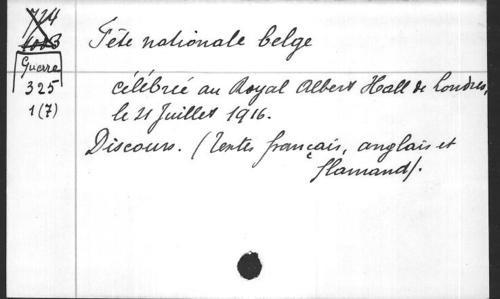 Guerre
325
1(7)
Fête nationale belge
célébrée au Royal Albert Hall de Londres,
le 21 Juillet 1916.
Discours. (Textes français, anglais et
flamand).